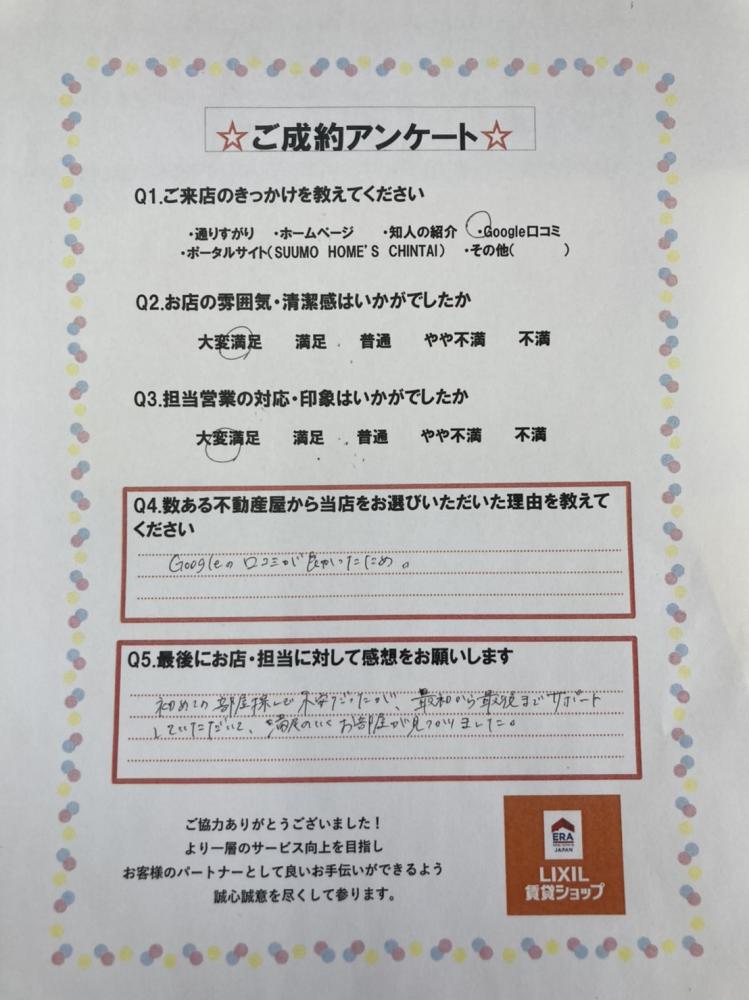 ☆ご成約アンケート☆
Q1.ご来店のきっかけを教えてください
・通りすがり ・ホームページ ・知人の紹介 ・Google口コミ
・ポータルサイト(SUUMO HOME'S CHINTAI) ・その他( )
Q2.お店の雰囲気・清潔感はいかがでしたか
大変満足 満足 普通 やや不満 不満
Q3.担当営業の対応・印象はいかがでしたか
大変満足 満足 普通 やや不満 不満
Q4.数ある不動産屋から当店をお選びいただいた理由を教えて
ください
Googleの口コミが良かったため。
Q5.最後にお店・担当に対して感想をお願いします
初めての部屋探しで不安だったが、最初から最後までサポート
していただいて、満足のいくお部屋が見つかりました。
ご協力ありがとうございました!
より一層のサービス向上を目指し
お客様のパートナーとして良いお手伝いができるよう
誠心誠意を尽くして参ります。
ERA
JAPAN
LIXIL
賃貸ショップ